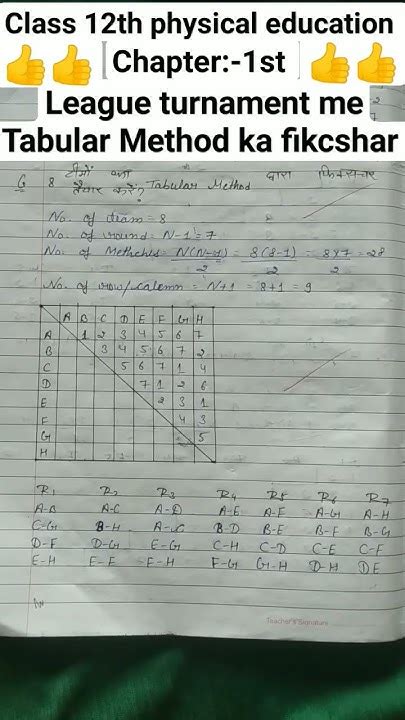 Class 12th physical education
👍👍 Chapter:-1st 👍👍
League turnament me
Tabular Method ka fikcshar
8 टीमों का Tabular Method द्वारा फिक्सचर
तैयार करें?
No. of team = 8
No. of round = N-1 = 7
No. of Metches = N(N-1)/2 = 8(8-1)/2 = 8x7/2 = 28
No. of row/calemn = N+1 = 8+1 = 9
A B C D E F G H
A 1 2 3 4 5 6 7
B 3 4 5 6 7 2
C 5 6 7 1 4
D 7 1 2 6
E 2 3 1
F 4 3
G 5
H
R1 R2 R3 R4 R5 R6 R7
A-B A-C A-D A-E A-F A-G A-H
C-G B-H B-D B-E B-F B-G
D-F D-G E-G C-H C-D C-E C-F
E-H E-F F-H F-G G-H D-H DE
Teacher's Signature